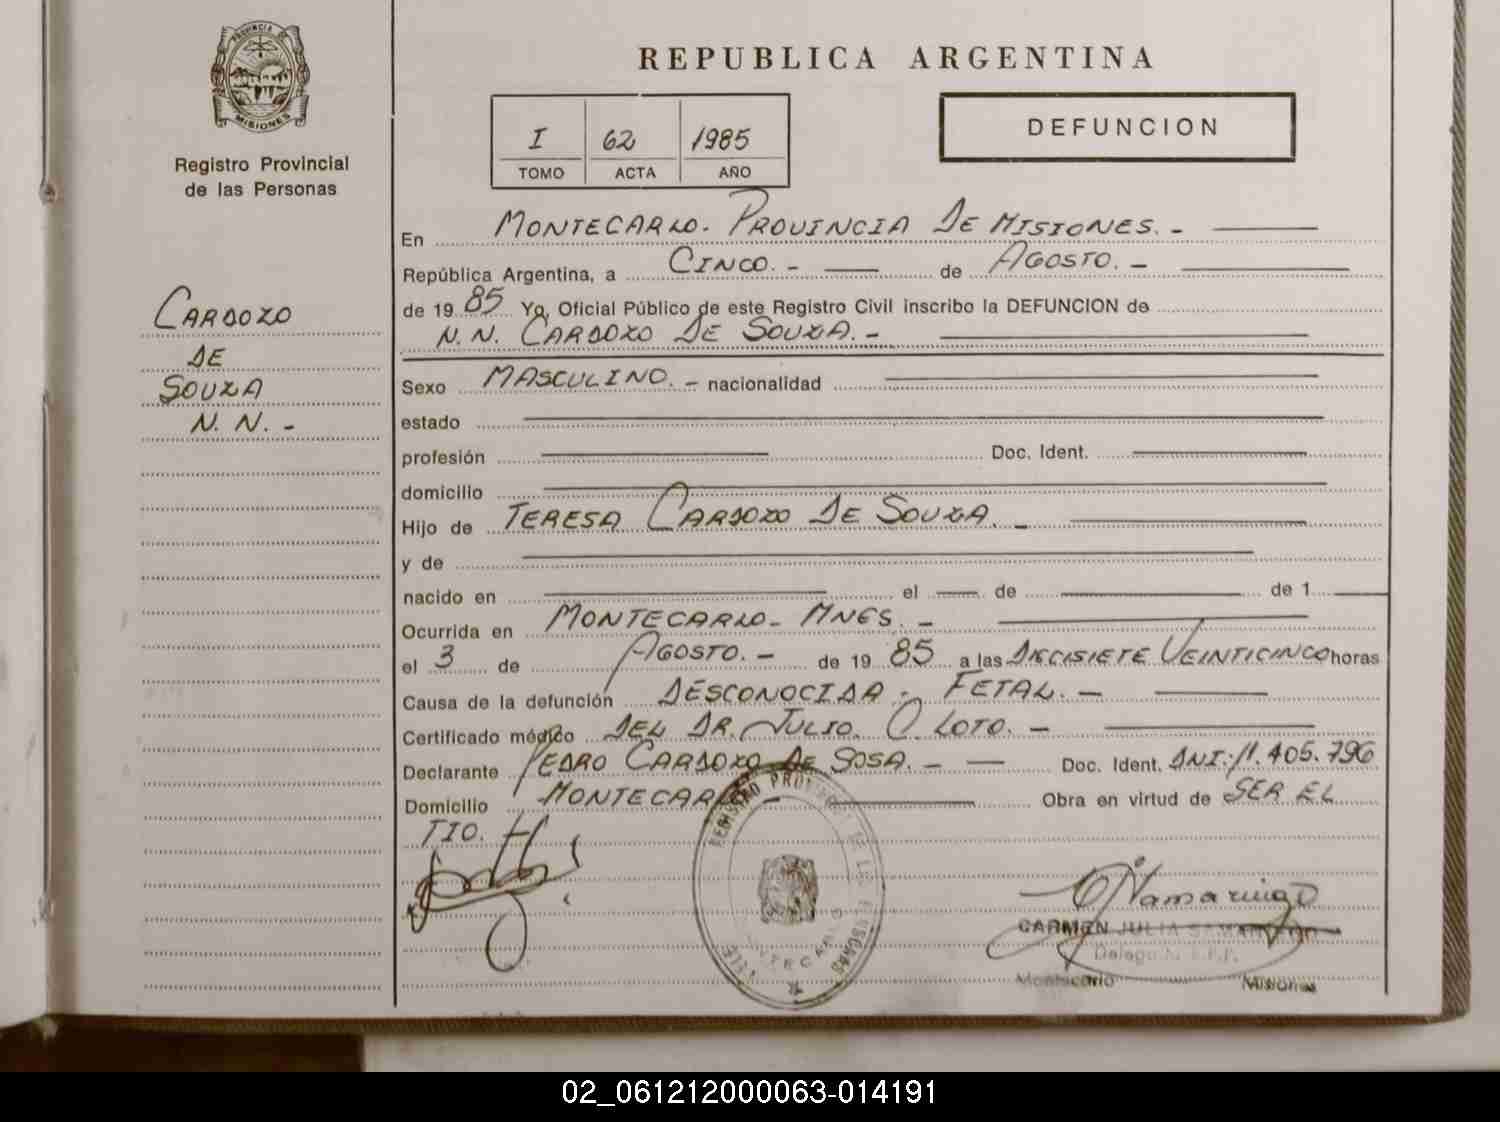 PROVINCIA DE
MISIONES
Registro Provincial
de las Personas
CARDOZO
DE
SOUZA
N. N. -
REPUBLICA ARGENTINA
I 62 1985
TOMO ACTA AÑO
DEFUNCION
En MONTECARLO. PROVINCIA DE MISIONES. -
República Argentina, a CINCO. - de AGOSTO. -
de 19 85 Yo, Oficial Público de este Registro Civil inscribo la DEFUNCION de
N. N. CARDOZO DE SOUZA. -
Sexo MASCULINO. - nacionalidad
estado
profesión Doc. Ident.
domicilio
Hijo de TERESA CARDOZO DE SOUZA. -
y de
nacido en el de de 1
Ocurrida en MONTECARLO - MNES. -
el 3 de AGOSTO. - de 19 85 a las DIECISIETE VEINTICINCO horas
Causa de la defunción DESCONOCIDA - FETAL. -
Certificado médico DEL DR. JULIO. C. LOTO. -
Declarante PEDRO CARDOZO DE SOSA. - Doc. Ident. DNI: 11.405.796
Domicilio MONTECARLO - Obra en virtud de SER EL
TIO.
REGISTRO PROVINCIAL DE LAS PERSONAS
MONTECARLO
CARMEN JULIA SAMANIEGO
Montecarlo Misiones
02_061212000063-014191